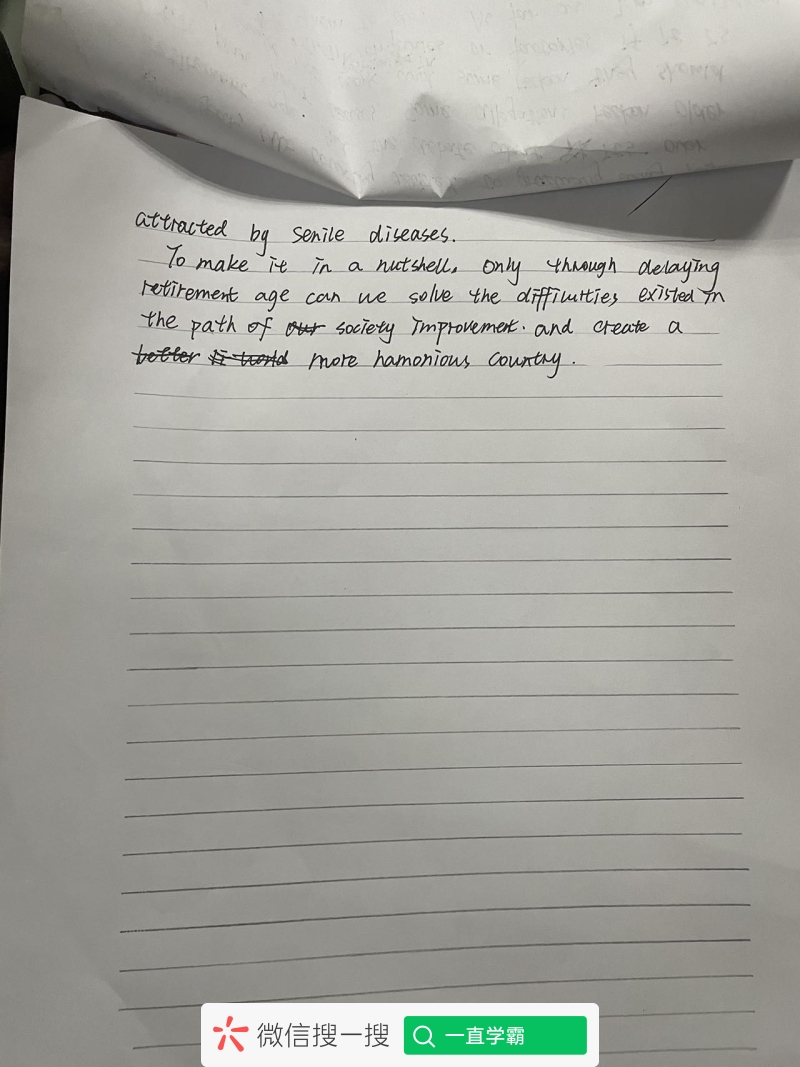 attracted by senile diseases.
To make it in a nutshell, only through delaying
retirement age can we solve the difficulties existed in
the path of our society improvement. and create a
better world more hamonious country.
微信搜一搜
一直学霸